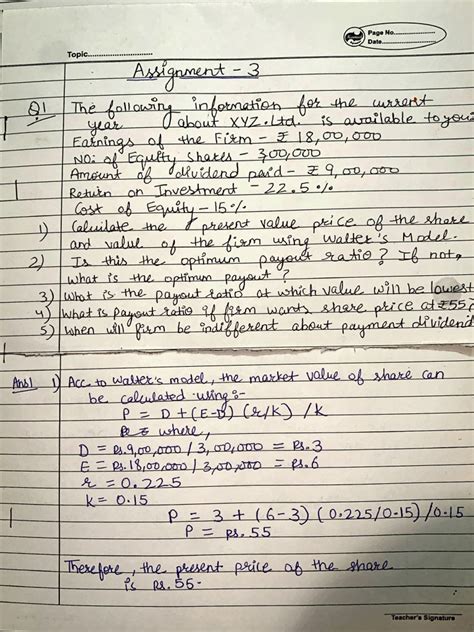 Page No.
Date
Topic
Assignment - 3
Q1 The following information for the current
year about XYZ. Ltd. is available to you
Earnings of the Firm - ₹ 18,00,000
NO: of Equity shares - 3,00,000
Amount of dividend paid - ₹ 9,00,000
Return on Investment - 22.5 %
Cost of Equity - 15 %
1) Calculate the present value price of the share
and value of the firm using Walter's Model.
2) Is this the optimum payout ratio? If not,
what is the optimum payout?
3) What is the payout ratio at which value will be lowest
4) What is payout ratio if firm wants share price at ₹55?
5) When will firm be indifferent about payment dividend
Ans1 1) Acc. to Walter's model, the market value of share can
be calculated using:-
P = D + (E-D) (r/K) / K
where,
D = Rs. 9,00,000 / 3,00,000 = Rs. 3
E = Rs. 18,00,000 / 3,00,000 = Rs. 6
r = 0.225
K = 0.15
P = 3 + (6-3) (0.225/0.15) / 0.15
P = Rs. 55
Therefore, the present price of the share
is Rs. 55.
Teacher's Signature